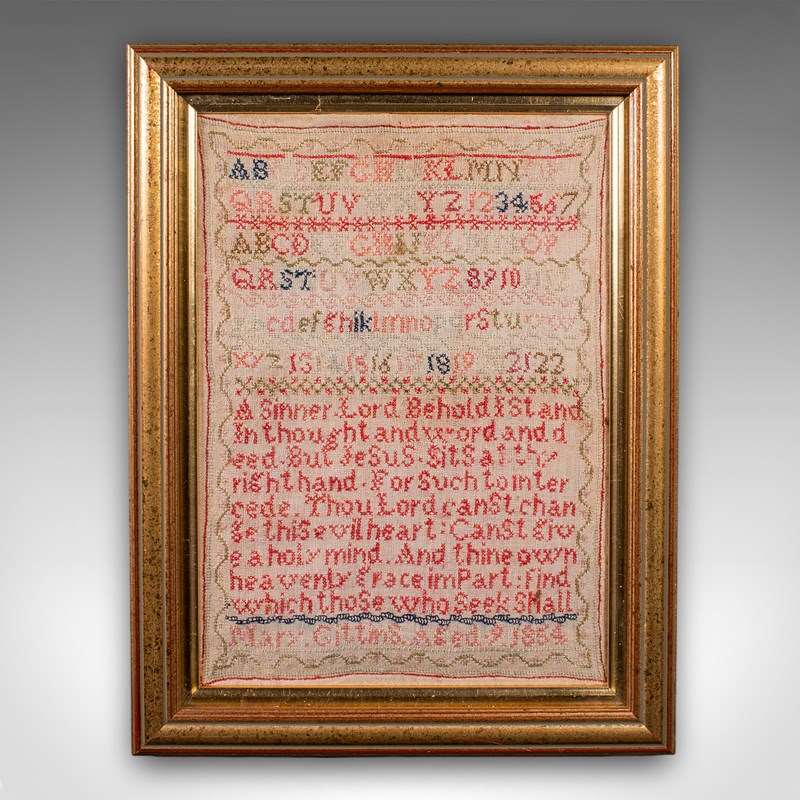 AB EFGH KLMN OP
QRSTUV YZ1234567
ABCD GHIJKL OP
QRSTU WXYZ8910
cdefghiklmnopqrstuvw
XYZ13141516 1819 2122
A Sinner Lord Behold I Stand
In thought and word and d
eed. But JeSuS. SitS at thy
right hand. For Such to inter
cede. Thou Lord canSt chan
ge thiS evil heart: CanSt giv
e a holy mind. And thine own
heavenly Grace imPart: find
which thoSe who Seek Shall
Mary. GittinS. aged 9 1854